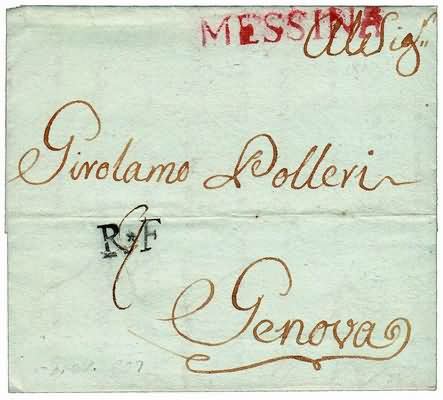 MESSINA
Al Sigr
Girolamo Polleri
R*F
Genova